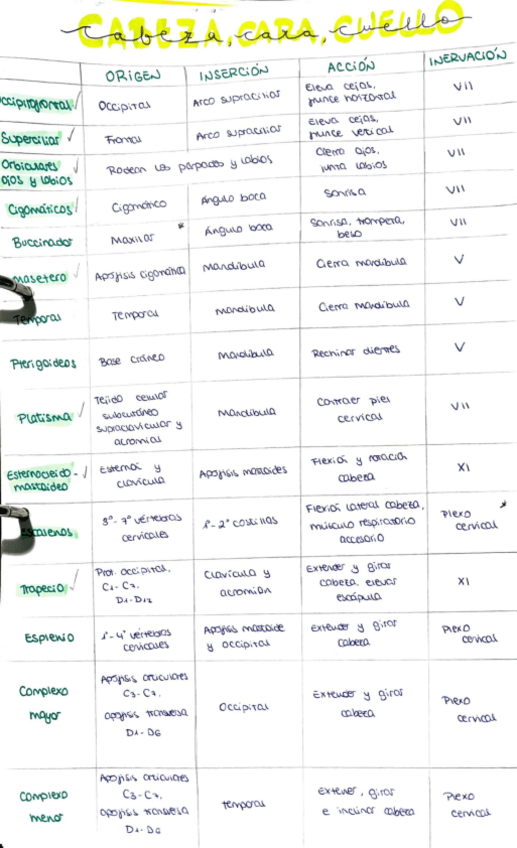 Cabeza, cara, cuello
ORIGEN INSERCIÓN ACCIÓN INERVACIÓN
ccipitofrontal Occipital Arco supraciliar Eleva cejas, VII
frunce horizontal
Superciliar Frontal Arco supraciliar Eleva cejas, VII
frunce vertical
Orbiculares Rodean los párpados y labios Cierra ojos, VII
ojos y labios junta labios
Cigomáticos Cigomático Ángulo boca Sonrisa VII
Buccinador Maxilar * Ángulo boca Sonrisa, trompeta, VII
beso
masetero Apófisis cigomática Mandíbula Cierra mandíbula V
Temporal Temporal Mandíbula Cierra mandíbula V
Pterigoideos Base cráneo Mandíbula Rechinar dientes V
Platisma Tejido celular Mandíbula Contraer piel VII
subcutáneo cervical
supraclavicular y
acromial
Esternocleido- Esternón y Apófisis mastoides Flexión y rotación XI
mastoideo clavícula cabeza
scalenos 3º-7º vértebras 1º-2º costillas Flexión lateral cabeza, Plexo *
cervicales músculo respiratorio cervical
accesorio
Trapecio Prot. occipital, Clavícula y Extender y girar XI
C1-C7, acromion cabeza, elevar
D1-D12 escápula
Esplenio 1º-4º vértebras Apófisis mastoide Extender y girar Plexo
cervicales y occipital cabeza cervical
Complexo Apófisis articulares Occipital Extender y girar Plexo
mayor C3-C7, cabeza cervical
apófisis transversa
D1-D6
Complexo Apófisis articulares temporal Extener, girar Plexo
menor C3-C7, e inclinar cabeza cervical
apófisis transversa
D1-D6